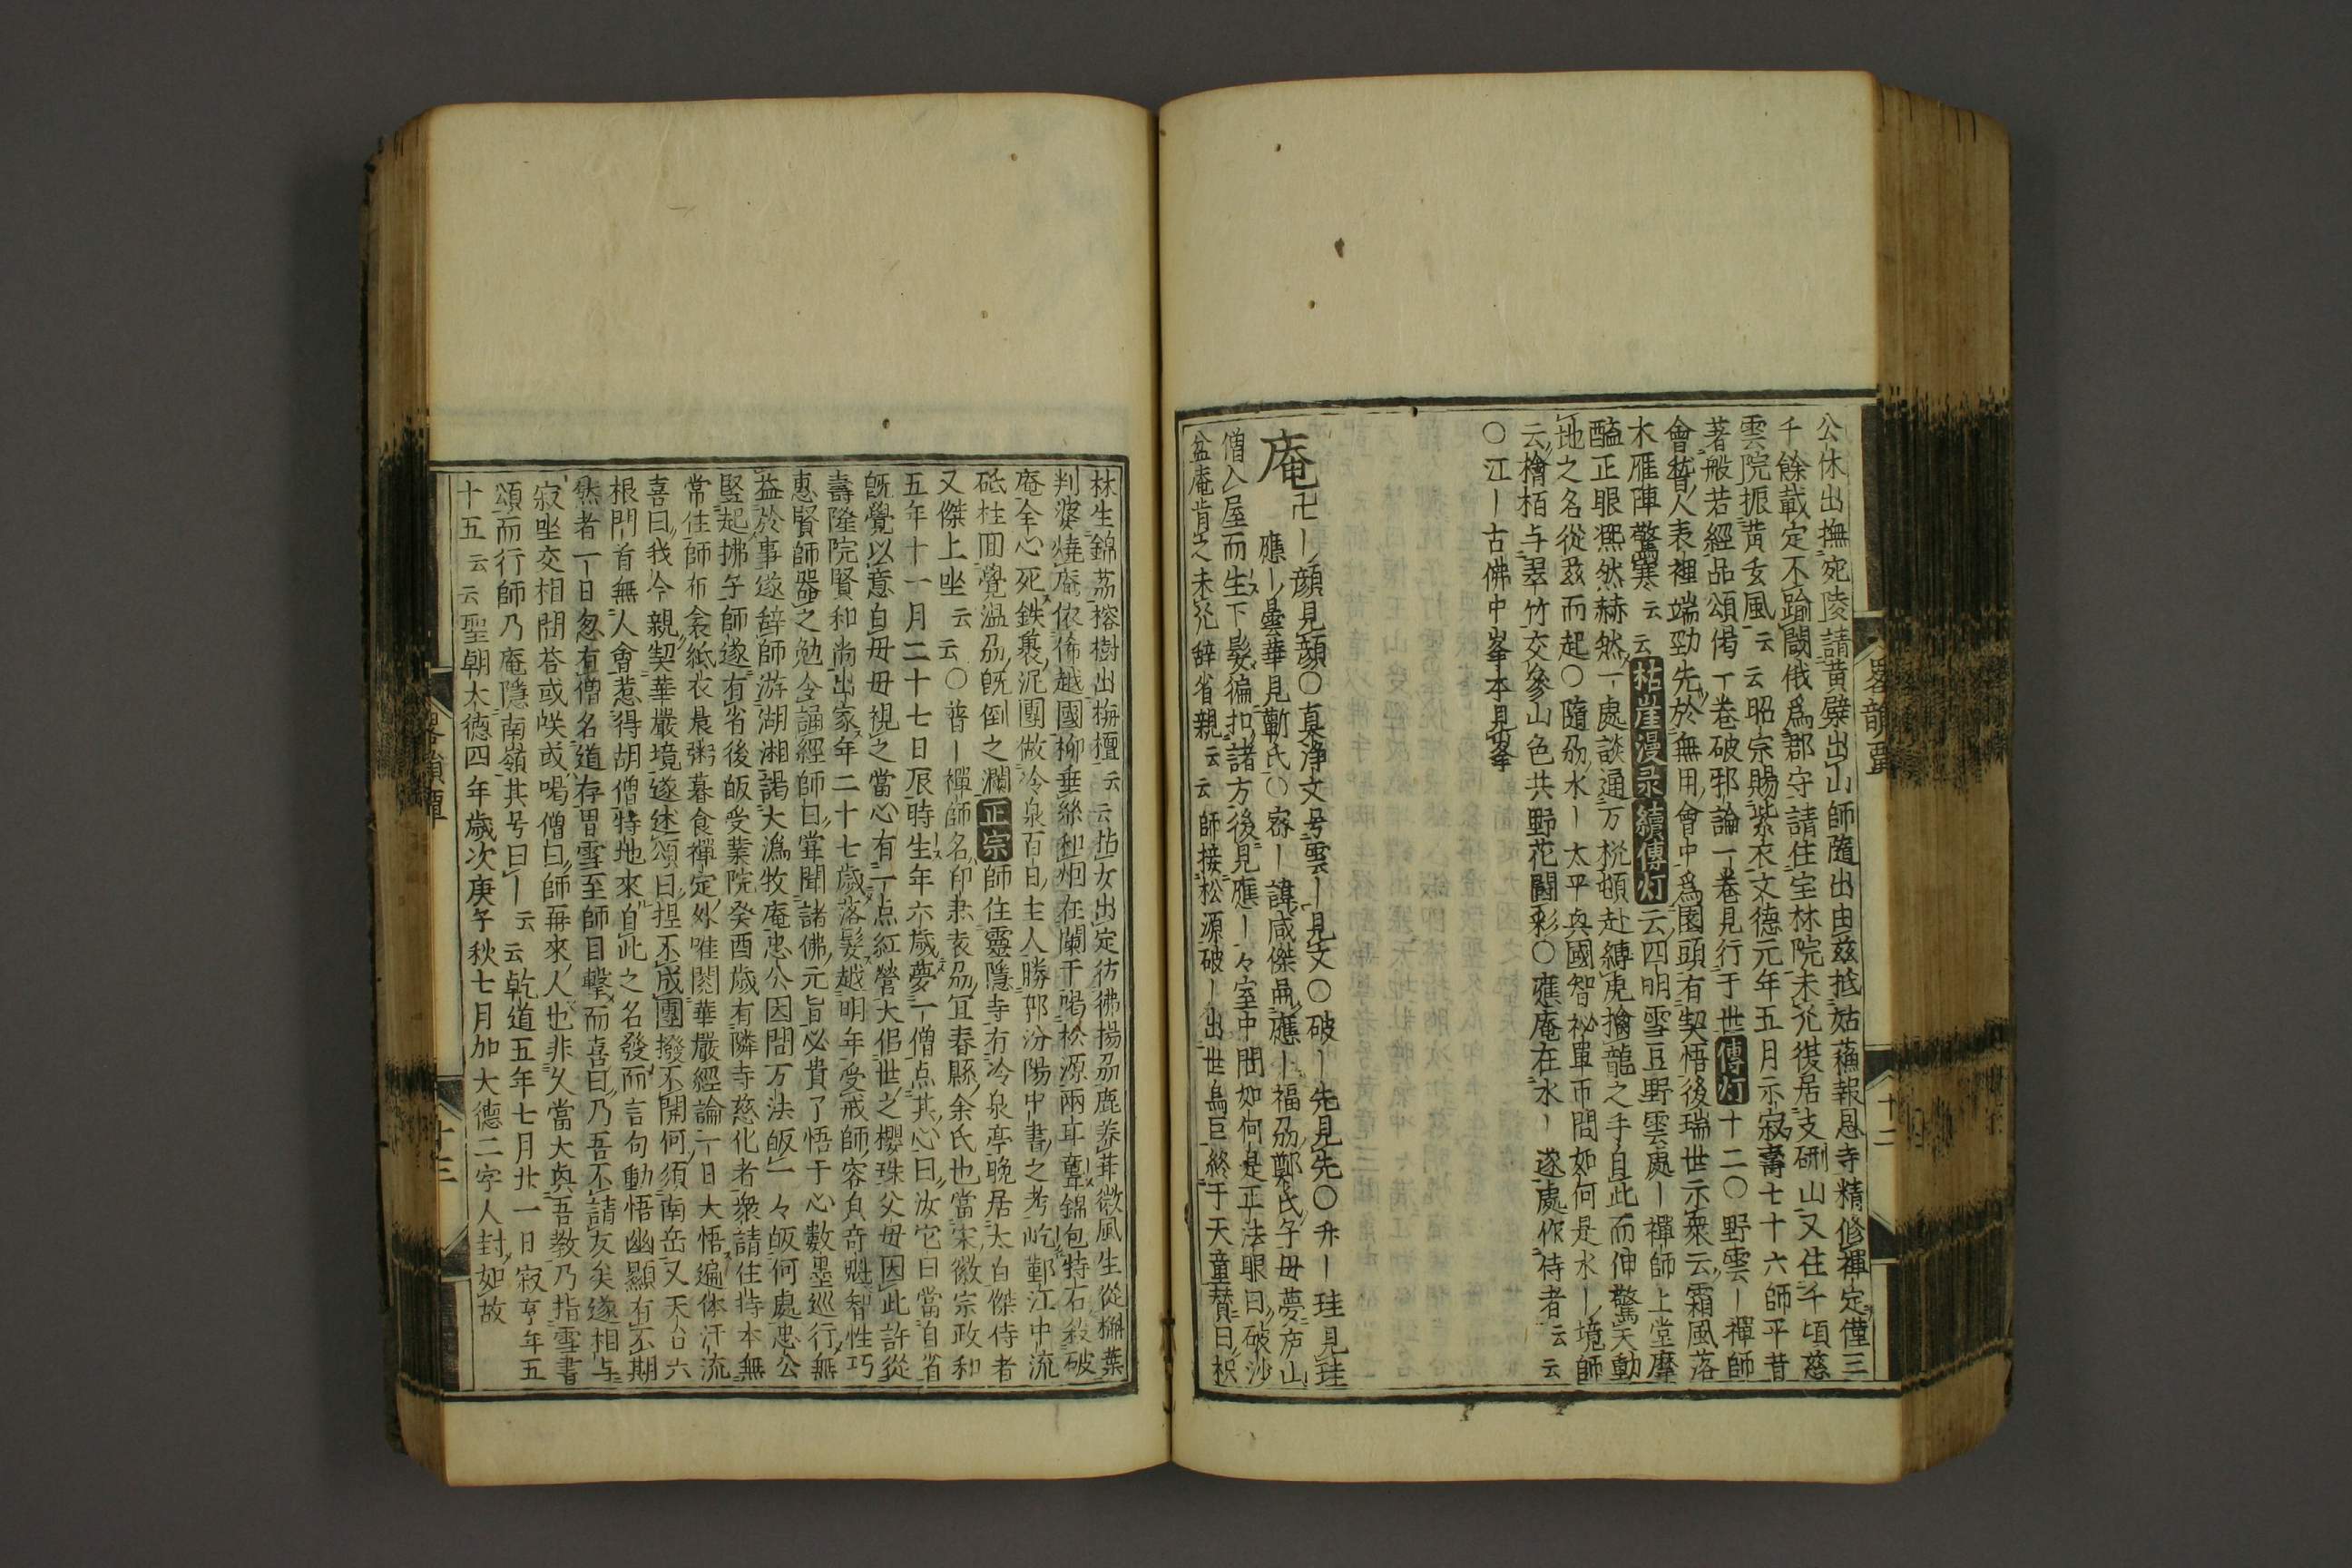 公休出撫宛陵請黃檗出山師隨出由茲抵姑蘓報恩寺精修禪定僅三
千餘載定不踰閾俄爲郡守請住宝林院未幾徙居支硎山又住千頃慈
雲院振黃玄風云云昭宗賜紫衣文德元年五月示寂壽七十六師平昔
著般若經品頌偈一卷破邪論一卷見行于世傳灯十二〇野雲ー禪師
會稽人表裡端勁先於無用會中爲園頭有契悟後瑞世示衆云霜風落
木雁陣驚寒云云枯崖漫录續傳灯云四明雪豆野雲處ー禪師上堂摩
醯正眼爍然赫然一處談通万机頓赴縛虎擒龍之手自此而伸驚天動
地之名從茲而起〇隨刕水ー太平與國智祕單帀問如何是水ー境師
云檜栢与翠竹交參山色共野花闘彩〇應庵在水ー遂處作侍者云云
〇江ー古佛中峯本見峯
庵卍ー顔見顔〇真淨文号雲ー見文〇破ー先見先〇卉ー珪見珪
應ー曇華見蘄氏〇密ー諱咸傑嗣應ー福刕鄭氏子母夢庐山
僧入屋而生下髮徧扣諸方後見應ー々室中問如何是正法眼曰破沙
盆庵肯之未幾辞省親云云師接松源破ー出世烏巨終于天童賛曰枳
林生錦茘榕樹出栴檀云云拈女出定彷彿揚刕鹿养茸微風生從槲葉
判婆燒庵依俙越國柳垂絲和烟在闌干喝松源兩耳聾錦包特石殺破
庵全心死鉄裹泥團做冷泉百日主人勝郭汾陽中書之考屹鄞江中流
砥柱囬覺温刕旣倒之瀾正宗師住靈隱寺有冷泉亭晚居太白傑侍者
又傑上坐云云〇普ー禪師名印肃袁刕宜春縣余氏也當宋徽宗政和
五年十一月二十七日辰時生年六歲夢一僧点其心曰汝它日當自省
旣覺以意白毋毋視之當心有一点紅營大佀世之櫻珠父毋因此許從
壽隆院賢和尚出家年二十七歲落髮越明年受戒師容皃奇魁智性巧
惠賢師器之勉令誦經師曰甞聞諸佛元旨必貴了悟于心數墨巡行無
益於事遂辞師游湖湘謁大潙牧庵忠公因問万法皈一々皈何處忠公
竪起拂子師遂有省後皈受業院癸酉歲有隣寺慈化者衆請住持本無
常住師布衾紙衣晨粥暮食禪定外唯閱華嚴經論一日大悟遍体汗流
喜曰我今親契華嚴境遂述頌曰揑不成團撥不開何須南岳又天台六
根門首無人會惹得胡僧特地來自此之名發而言句動悟幽顯有不期
然者一日忽有僧名道存冐雪至師目擊而喜曰乃吾不請友矣遂相与
寂坐交相問荅或咲或喝僧曰師再來人也非久當大與吾教乃指雪書
頌而行師乃庵隱南嶺其号曰ー云云乾道五年七月廿一日寂亨年五
十五云云聖朝太德四年歲次庚子秋七月加大德二字人封如故
畧韻覃
十二
畧韻覃
十三